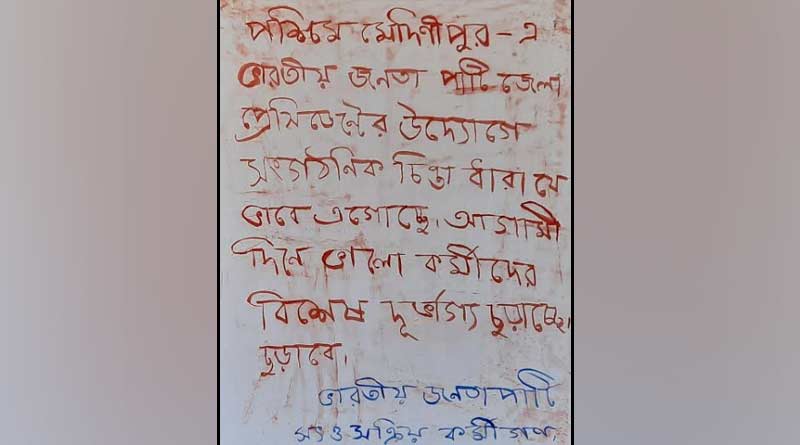 পশ্চিমে মেদিনীপুর - এ
ভারতীয় জনতা পার্টি জেলা
প্রেসিডেন্টের উদ্যোগে
সংগঠনিক চিন্তা ধারা যে
ভাবে এগোচ্ছে, আগামী
দিনে ভালো কর্মীদের
বিশেষ দূর্ভাগ্য চুড়াচ্ছে,
চুড়াবে,
ভারতীয় জনতা পার্টি
সৎ ও সক্রিয় কর্মী গণ,